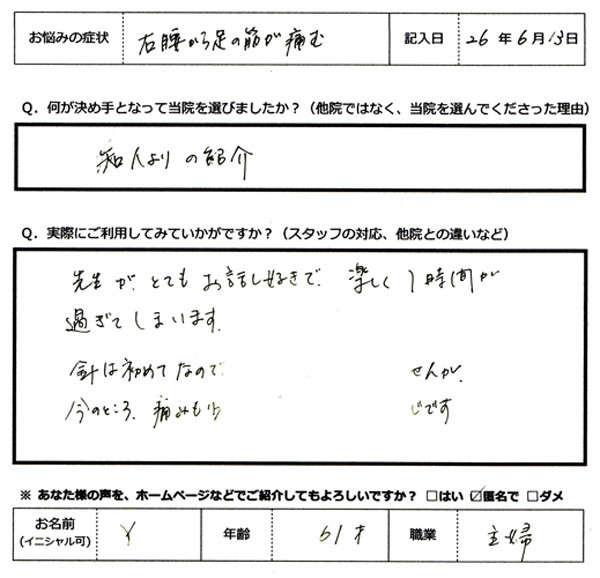 お悩みの症状 右腰から足の筋が痛む 記入日 26年6月13日
Q. 何が決め手となって当院を選びましたか？（他院ではなく、当院を選んでくださった理由）
知人よりの紹介
Q. 実際にご利用してみていかがですか？（スタッフの対応、他院との違いなど）
先生が、とてもお話し好きで、楽しく1時間が
過ぎてしまいます。
針は初めてなので せんが、
今のところ、痛みも少 じです
※ あなた様の声を、ホームページなどでご紹介してもよろしいですか？ □はい ☑匿名で □ダメ
お名前 (イニシャル可) Y 年齢 61才 職業 主婦